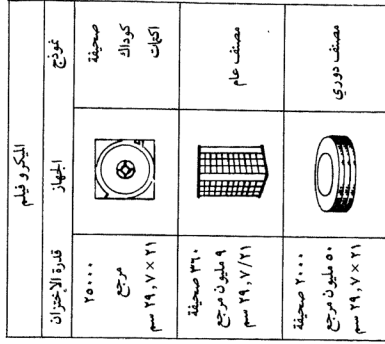 الميكرو فيلم
نموذج
الجهاز
قدرة الإختزان
اكتات
كوداك
صحيفة
٢٥٠٠٠
مرجع
٢١ × ٢٩,٧ سم
مصنف عام
٣٦٠ صحيفة
٩ مليون مرجع
٢٩,٧/٢١ سم
مصنف دوري
٢٠٠٠ صحيفة
٥٠ مليون مرجع
٢١ × ٢٩,٧ سم